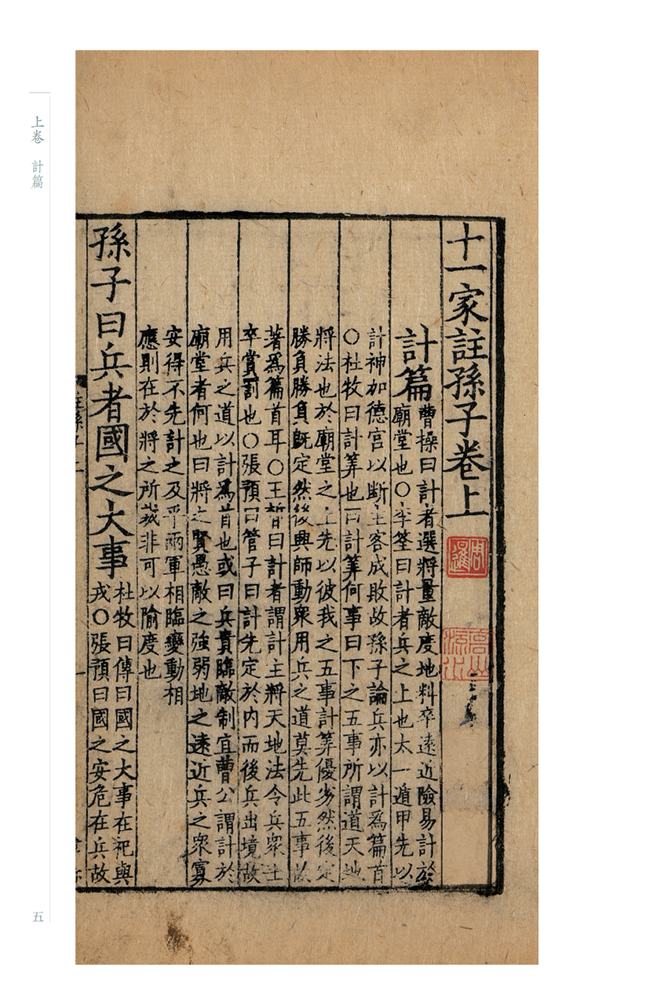 上卷 計篇
十一家註孫子卷上
周暹
計篇
曹操曰計者選將量敵度地料卒遠近險易計於
廟堂也〇李筌曰計者兵之上也太一遁甲先以
計神加德宮以斷主客成敗故孫子論兵亦以計爲篇首
〇杜牧曰計筭也曰計筭何事曰下之五事所謂道天地
將法也於廟堂之上先以彼我之五事計筭優劣然後定
勝負勝負旣定然後興師動衆用兵之道莫先此五事故
著爲篇首耳〇王晳曰計者謂計主將天地法令兵衆士
卒賞罰也〇張預曰管子曰計先定於内而後兵出境故
用兵之道以計爲首也或曰兵貴臨敵制宜曹公謂計於
廟堂者何也曰將之賢愚敵之強弱地之遠近兵之衆寡
安得不先計之及乎兩軍相臨變動相
應則在於將之所裁非可以隃度也
孫子曰兵者國之大事
杜牧曰傳曰國之大事在祀與
戎〇張預曰國之安危在兵故
五